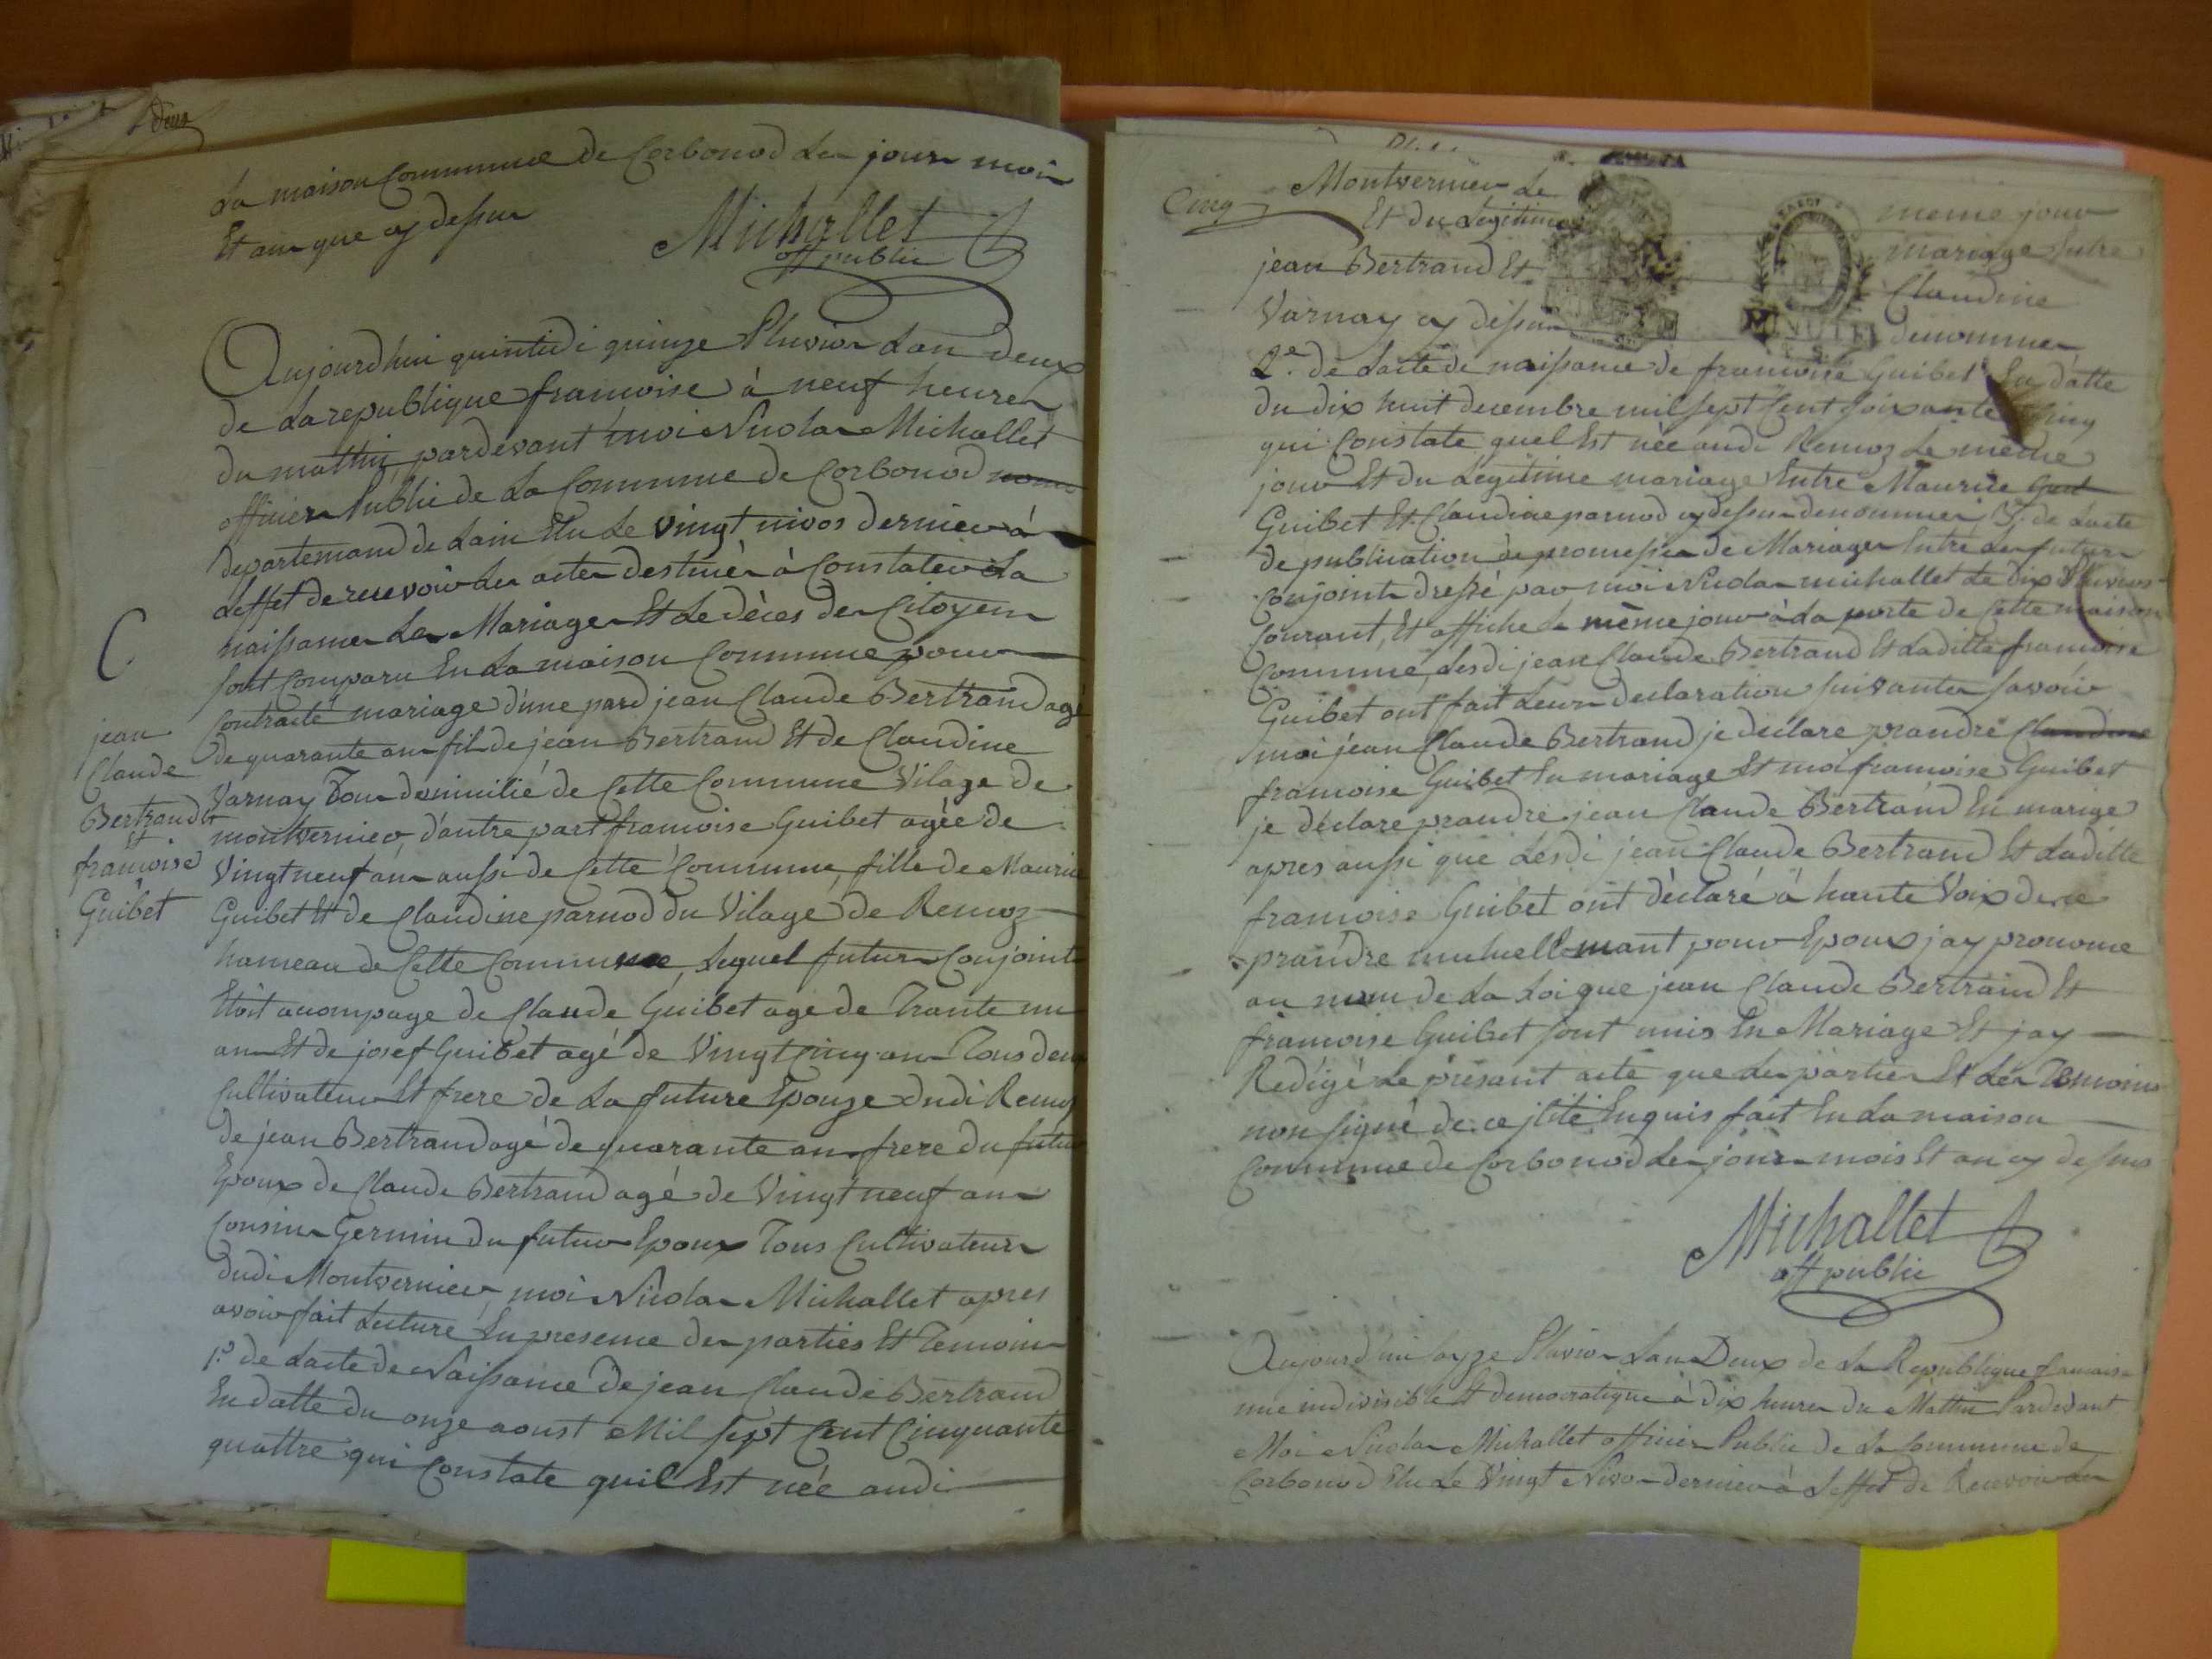 deux
La maison Commune de Corbonod les jour mois
Et ans que cy dessus
Michallet
off public
Aujourdhui quintidi quinze Pluvios Lan deux
de La republique francoise à neuf heures
du mattin, pardevant moi Nicolas Michallet
officier Public de La Commune de Corbonod
departemand de Lain Elu Le vingt nivos dernier à
Leffet de recevoir les actes destinés à Constater La
naissances Les Mariages Et Le dèces des Citoyens
sont Comparu En La maison Commune pour
Contracté mariage d'une pard jean Claude Bertrand agé
de quarante ans fils de jean Bertrand Et de Claudine
Varnay Tous domicilié de Cette Commune Vilage de
montvernier, d'autre part francoise Guibet agée de
Vingt neuf ans aussi de Cette Commune, fille de Maurice
Guibet Et de Claudine parnod du Vilage de Remoz
hameau de Cette Commune, Lequel futurs Conjoints
Etoit acompagé de Claude Guibet age de Trante un
ans Et de josef Guibet agé de Vingt Cinq ans Tous deux
Cultivateurs Et frere de La future Epouze dudi Remoz
de jean Bertrand agé de quarante ans frere du futur
Epoux de Claude Bertrand agé de Vingt neuf ans
Cousins Germin du futur Epoux Tous Cultivateurs
dudi Montvernier moi Nicolas Michallet apres
avoir fait Lecture En presence des parties Et Temoins
1.º de Lacte de Naissance de jean Claude Bertrand
En datte du onze aoust Mil sept Cent Cinquante
quattre qui Constate quil Est née audi
C
jean
Claude
Bertrand
Et
francoise
Guibet
Cinq
Montvernier Le même jour
Et du Legitime mariage Entre
jean Bertrand Et Claudine
Varnay cy dessus denommes
2.º de Lacte de naissance de francoise Guibet En datte
du dix huit decembre mil sept Cent soixante Cinq
qui Constate quel Est née audi Remoz Le même
jour Et du Legitime mariage Entre Maurice
Guibet Et Claudine parnod cy dessus denommes, 3.º de Lacte
de publication de promesses de Mariages Entre les futurs
Conjoints dressé par moi Nicolas michallet Le dix Pluvios
Courant, Et affiche Le même jour à La porte de Cette maison
Commune, Lesdi jean Claude Bertrand Et Laditte francoise
Guibet ont fait Leurs declaration suivantes savoir
moi jean Claude Bertrand je declare prandre Claudine
francoise Guibet En mariage Et moi francoise Guibet
je déclare prandre jean Claude Bertrand En mariage
apres aussi que Lesdi jean Claude Bertrand Et Laditte
francoise Guibet ont déclaré à haute Voix de ce
prandre mutuellemant pour Epoux jay prononce
au nom de La Loi que jean Claude Bertrand Et
francoise Guibet sont unis En Mariage Et jay
Redigé Le présant acte que les parties Et Les Temoins
non signé de ce Enquis fait En La maison
Commune de Corbonod Les jours mois Et an cy dessus
Michallet
off public
MINUTE
Aujourd'hui sayze Pluvios Lan Deux de La Republique francaise
une indivisible Et democratique à dix heures du Mattin Pardevant
Moi Nicolas Michallet officier Public de La Commune de
Corbonod Elu Le Vingt Nivos dernier à Leffet de Recevoir Les